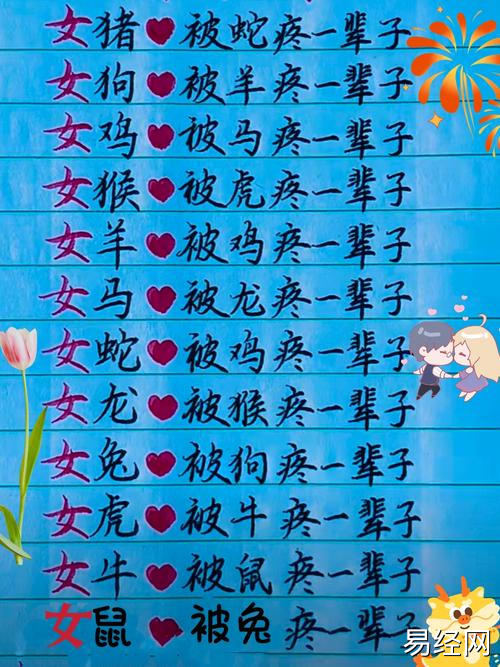 女猪❤被蛇疼一辈子
女狗❤被羊疼一辈子
女鸡❤被马疼一辈子
女猴❤被虎疼一辈子
女羊❤被鸡疼一辈子
女马❤被龙疼一辈子
女蛇❤被鸡疼一辈子
女龙❤被猴疼一辈子
女兔❤被狗疼一辈子
女虎❤被牛疼一辈子
女牛❤被鼠疼一辈子
女鼠❤被兔疼一辈子
易经网